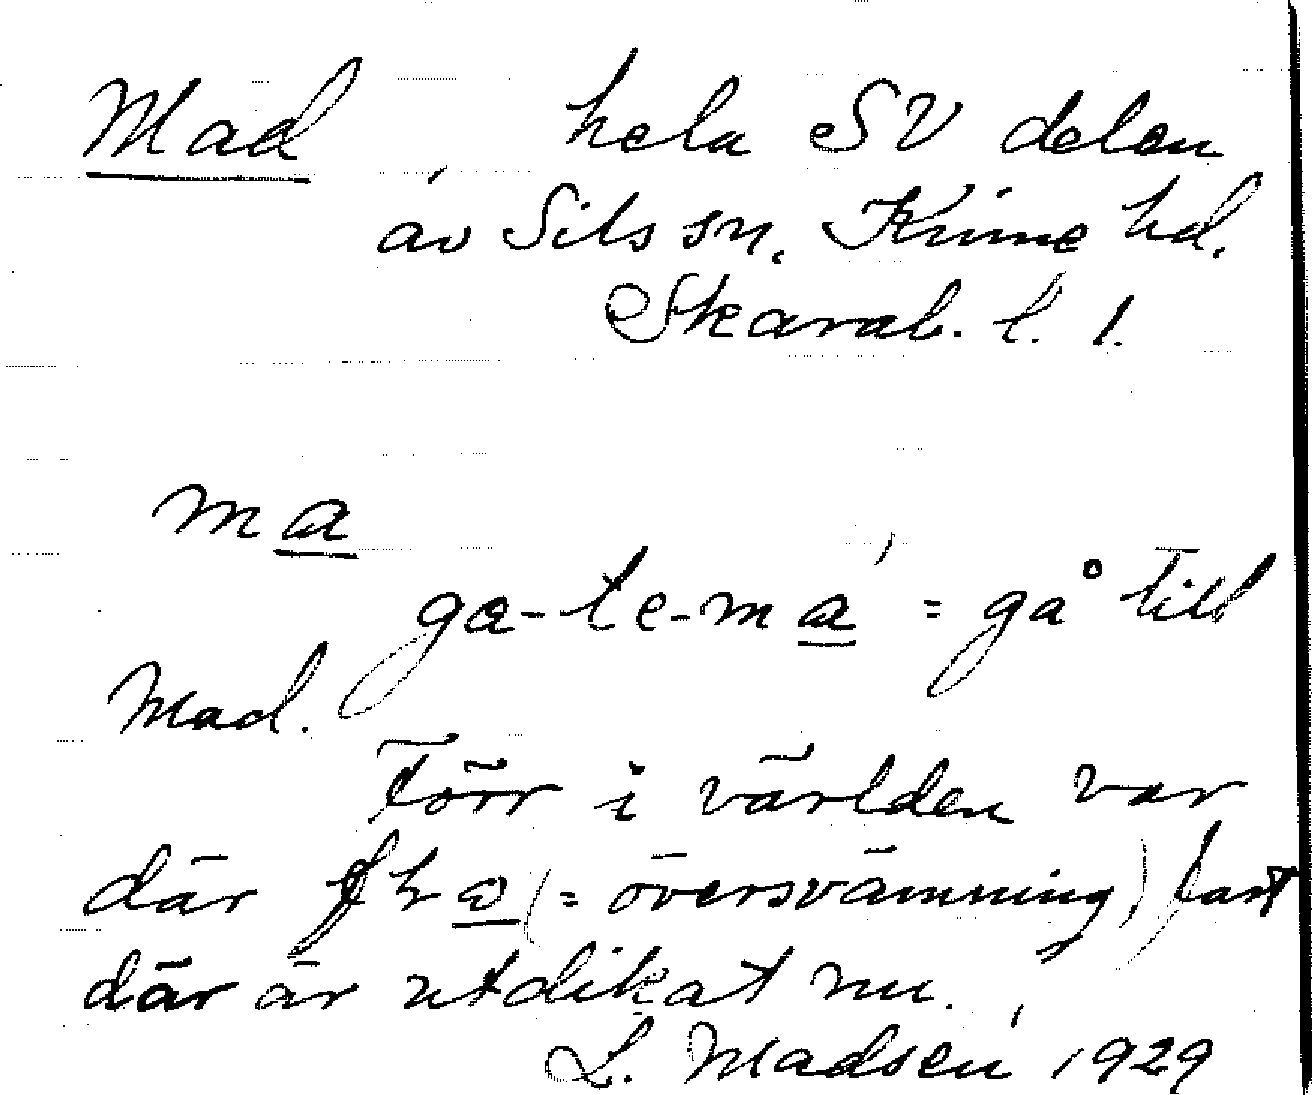 Mad hela SV delen
av Sils sn. Kinne hd.
Skarab. l. 1.
ma
ga-te-ma = gå till
Mad.
Förr i världen var
där (= översvämning) fast
där är utdikat nu.
L. Madsén 1929